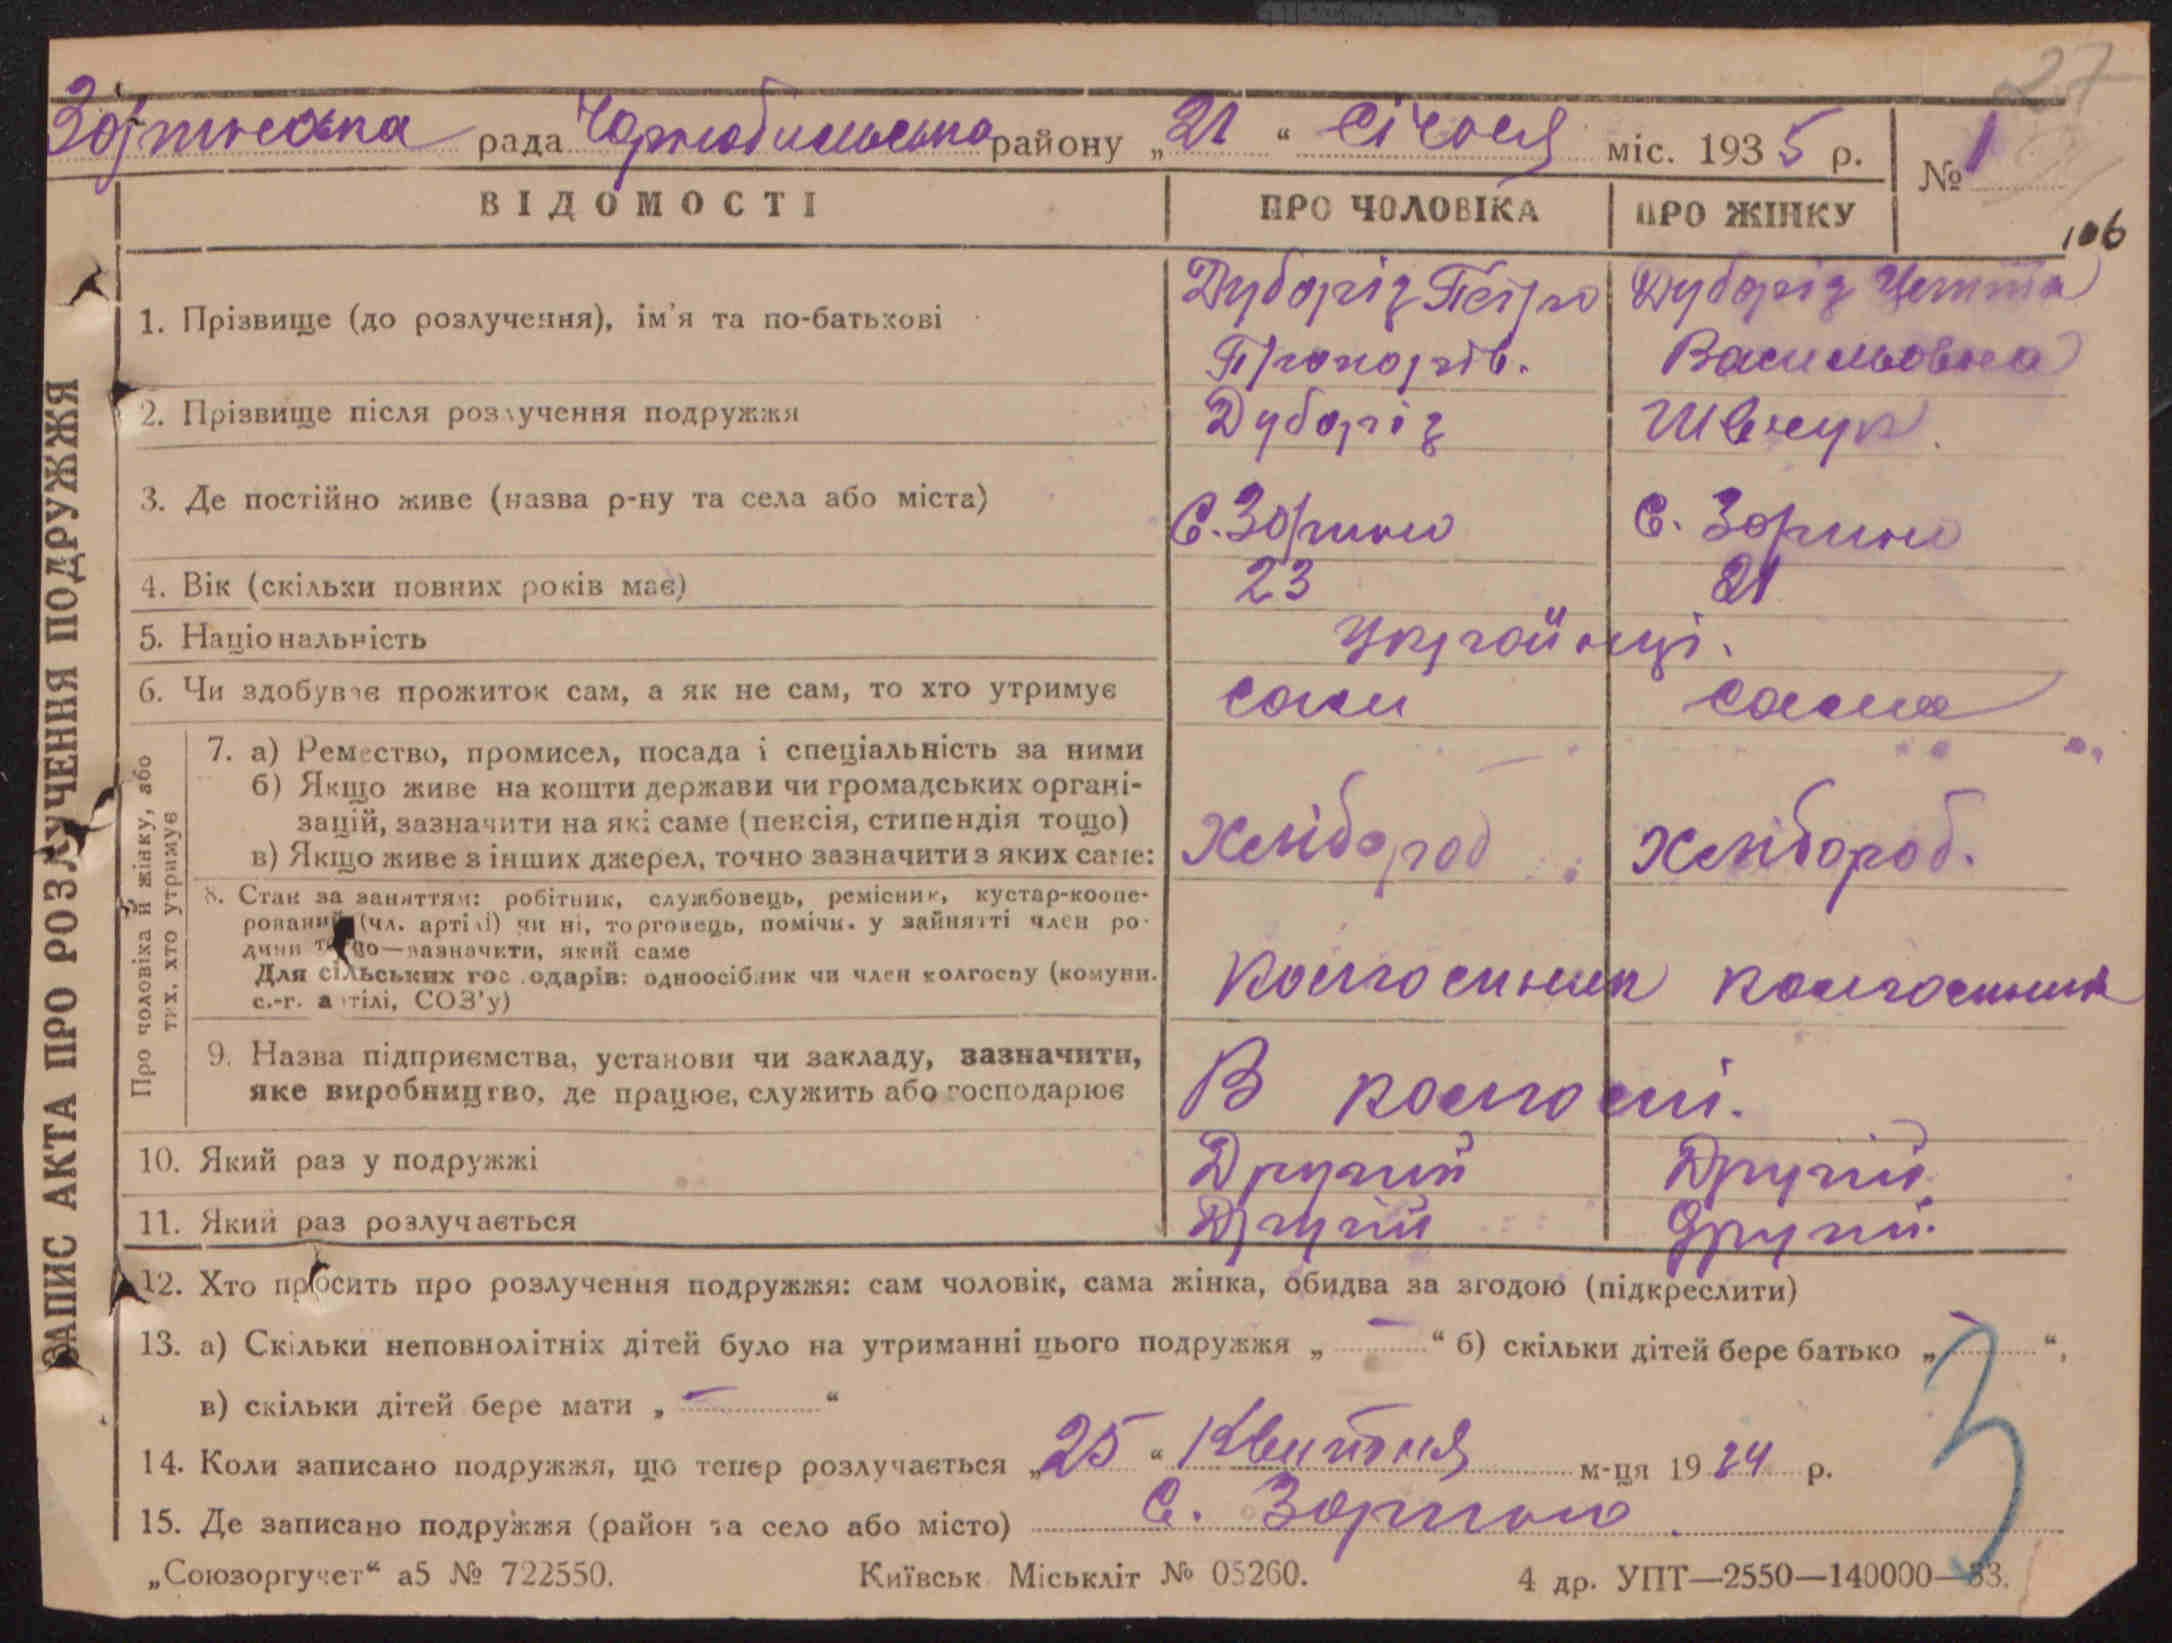 27
Зоринська рада Чорнобильська району „21“ Січня міс. 1935 р. № 1
ВІДОМОСТІ ПРО ЧОЛОВІКА ПРО ЖІНКУ
106
Дуборіз Петро Дуборіз
1. Прізвище (до розлучення), ім'я та по-батькові
Прокопів. Васильовна
2. Прізвище після розлучення подружжя Дуборіз Шевчук
3. Де постійно живе (назва р-ну та села або міста) С. Зорино С. Зорино
4. Вік (скільки повних років має) 23 21
5. Національність Україйнці.
6. Чи здобуває прожиток сам, а як не сам, то хто утримує сам сама
Про чоловіка й жінку, або тих, хто утримує
7. а) Ремество, промисел, посада і спеціальність за ними
б) Якщо живе на кошти держави чи громадських органі-
зацій, зазначити на які саме (пенсія, стипендія тощо)
в) Якщо живе з інших джерел, точно зазначити з яких саме: Хлібороб Хлібороб.
8. Стан за заняттям: робітник, службовець, ремісник, кустар-коопе-
рований (чл. артілі) чи ні, торговець, помічн. у зайнятті член ро-
дини тощо—зазначити, який саме
Для сільських господарів: одноосібник чи член колгоспу (комуни. Колгоспник колгоспник
с.-г. артілі, СОЗ'у)
9. Назва підприємства, установи чи закладу, зазначити,
яке виробництво, де працює, служить або господарює В колгоспі.
10. Який раз у подружжі Другий Другий
11. Який раз розлучається Другий Другий.
12. Хто просить про розлучення подружжя: сам чоловік, сама жінка, обидва за згодою (підкреслити)
13. а) Скільки неповнолітніх дітей було на утриманні цього подружжя „ — “ б) скільки дітей бере батько „ — “,
в) скільки дітей бере мати „ — “
3
14. Коли записано подружжя, що тепер розлучається „25“ Квитня м-ця 1934 р.
15. Де записано подружжя (район та село або місто) С. Зорино.
„Союзоргучет“ а5 № 722550. Київськ. Міськліт № 05260. 4 др. УПТ—2550—140000—33.
ЗАПИС АКТА ПРО РОЗЛУЧЕННЯ ПОДРУЖЖЯ